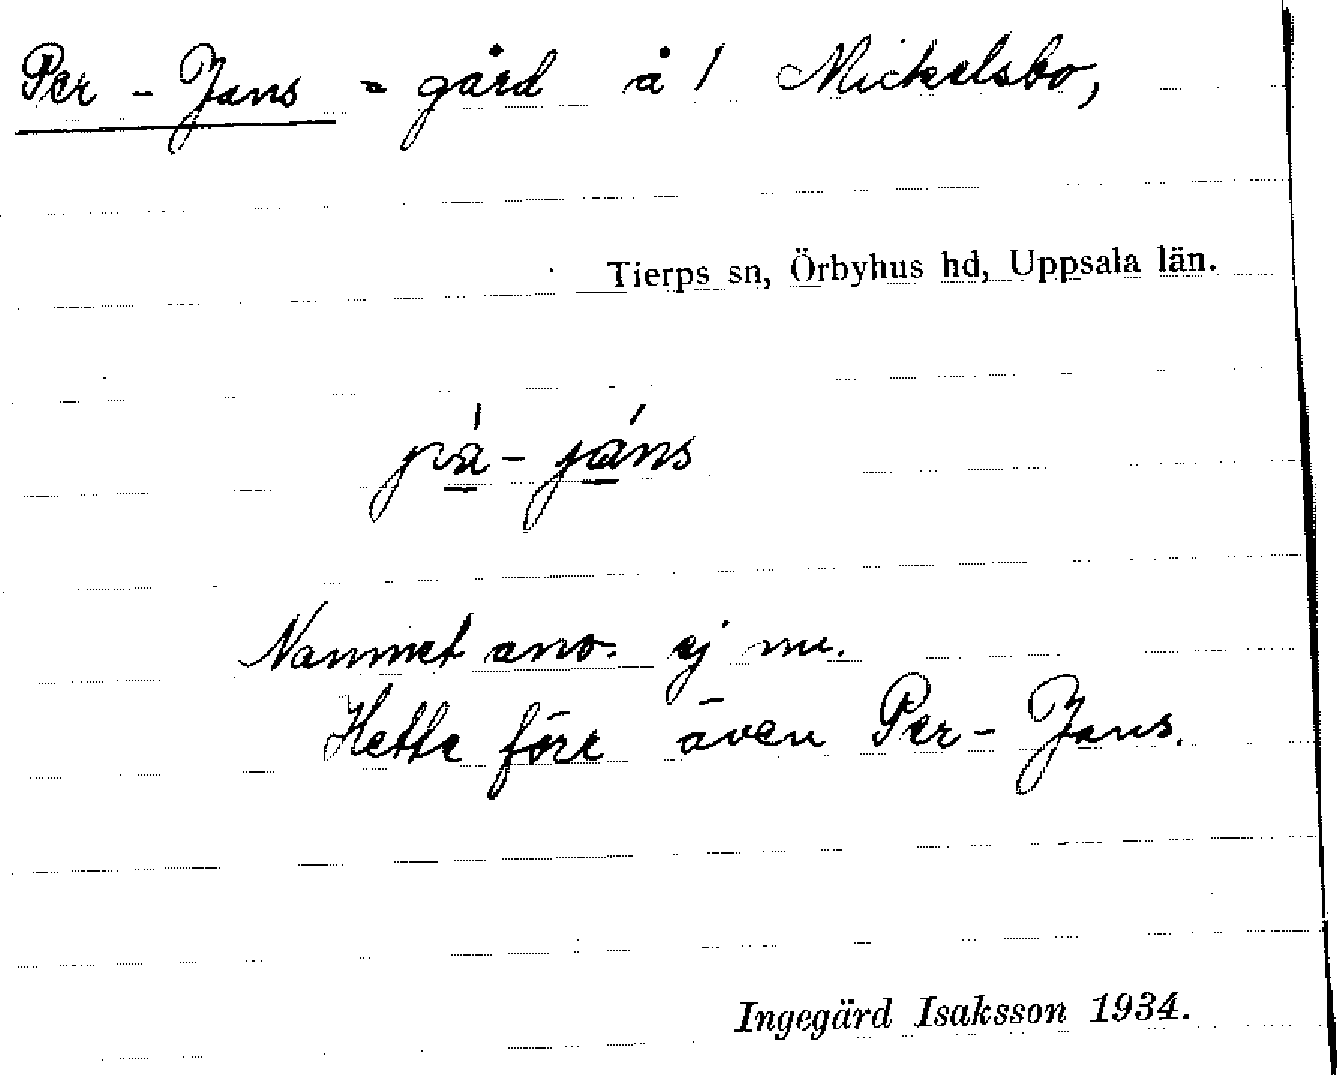 Per - Jans = gård å 1 Mickelsbo,
Tierps sn, Örbyhus hd, Uppsala län.
pä́ - jáns
Namnet anv. ej nu.
Hette förr även Per - Jans.
Ingegärd Isaksson 1934.